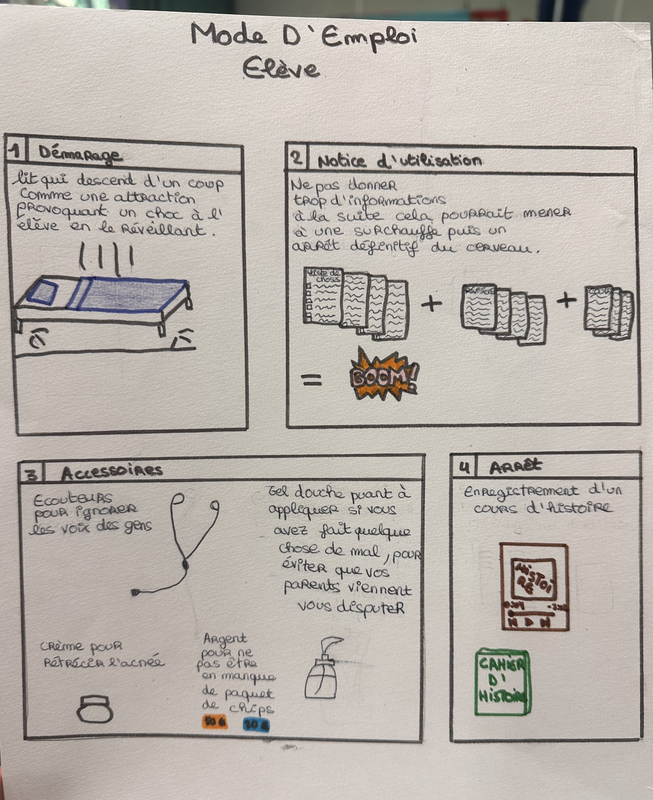 Mode D'Emploi
Elève
1 Démarage
lit qui descend d'un coup
comme une attraction
provoquant un choc à l'
élève en le réveillant.
2 Notice d'utilisation
Ne pas donner
trop d'informations
à la suite cela pourrait mener
à une surchauffe puis un
arrêt définitif du cerveau.
+
+
=
BOOM!
3 Accessoires
Ecouteurs
pour ignorer
les voix des gens
Gel douche puant à
appliquer si vous
avez fait quelque
chose de mal, pour
éviter que vos
parents viennent
vous disputer
crème pour
rétrécir l'acnée
Argent
pour ne
pas être
en manque
de paquet
de chips
4 Arrêt
Enregistrement d'un
cours d'histoire
HISTOI
RE
CAHIER
D'
HISTOIRE